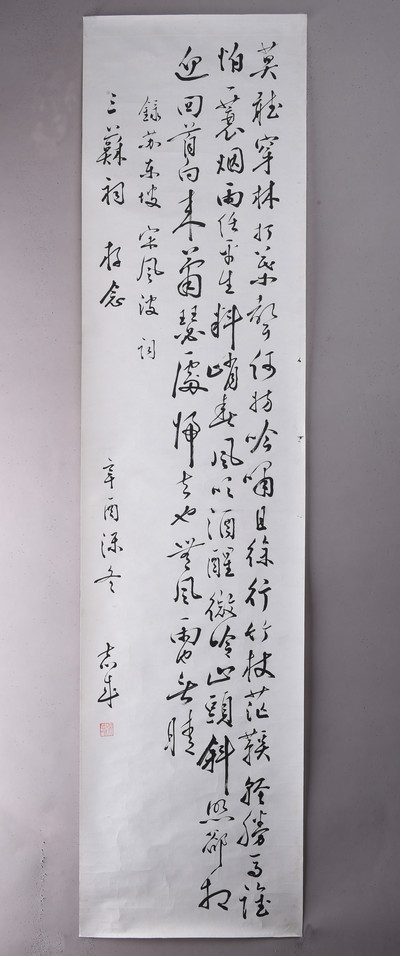 莫聽穿林打葉聲何妨吟嘯且徐行竹杖芒鞋輕勝馬誰
怕一蓑烟雨任平生料峭春風吹酒醒微冷山頭斜照卻相
迎回首向来蕭瑟處歸去也無風雨也無晴
錄苏东坡定风波词
三蘇祠存念
辛酉深冬